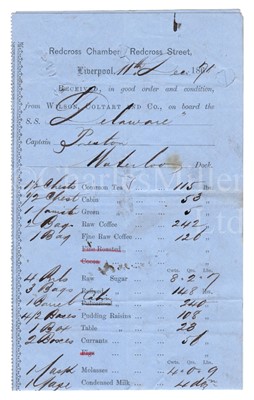 Redcross Chambers Redcross Street,
Liverpool, 11th Dec 1871
Received, in good order and condition,
from Wilson, Coltart and Co., on board the
S.S. Delaware
Captain Preston
Waterloo Dock.
Common Tea 115 lbs
1/2 Chest Cabin 53
Green 5
2 Bags Raw Coffee 242
1 Bag Fine Raw Coffee 126
Fine Roasted
Cocoa
Cwts. Qrs. lbs.
Raw Sugar 8 . 2 . 7
3 Bags 148 lbs
1 Barrel 240
4/2 Boxes Pudding Raisins 108
1 Box Table 23
2 Boxes Currants 56
Rice
Cwts. Qrs. lbs.
1 Cask Molasses 4 . 0 . 9
1 Case Condensed Milk 4 dzn
Charles Miller Ltd